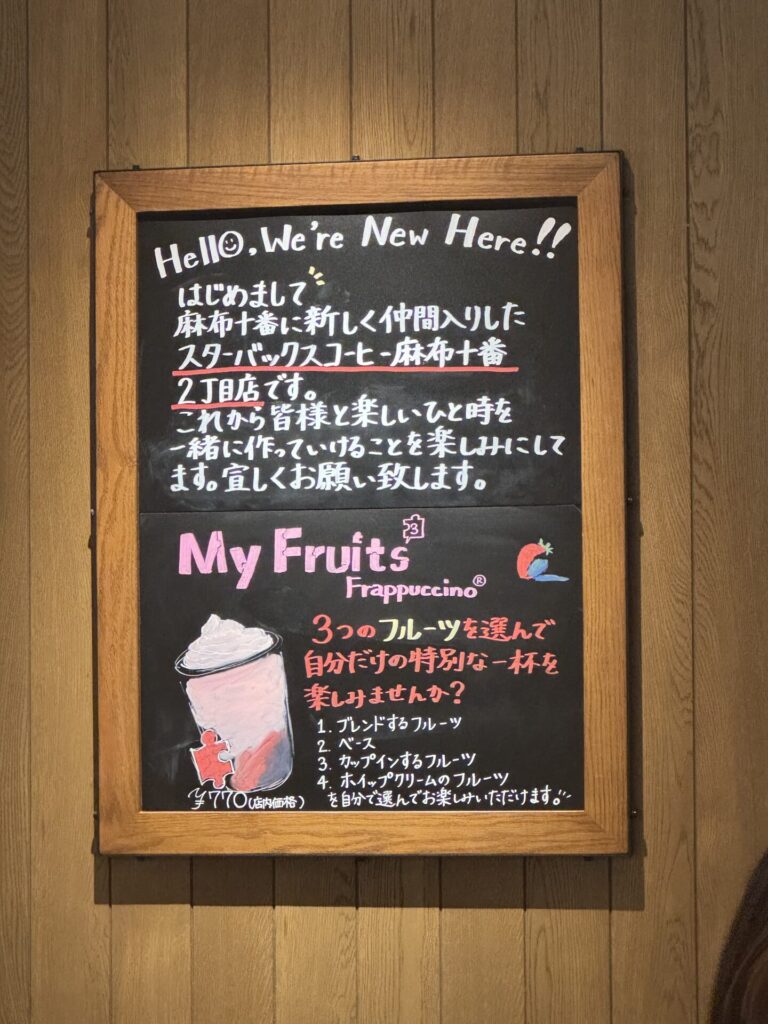 Hello, We're New Here!!
はじめまして
麻布十番に新しく仲間入りした
スターバックスコーヒー麻布十番
2丁目店です。
これから皆様と楽しいひと時を
一緒に作っていけることを楽しみにして
ます。宜しくお願い致します。
My Fruits³
Frappuccino®
3つのフルーツを選んで
自分だけの特別な一杯を
楽しみませんか?
1. ブレンドするフルーツ
2. ベース
3. カップインするフルーツ
4. ホイップクリームのフルーツ
を自分で選んでお楽しみいただけます。
¥770(店内価格)